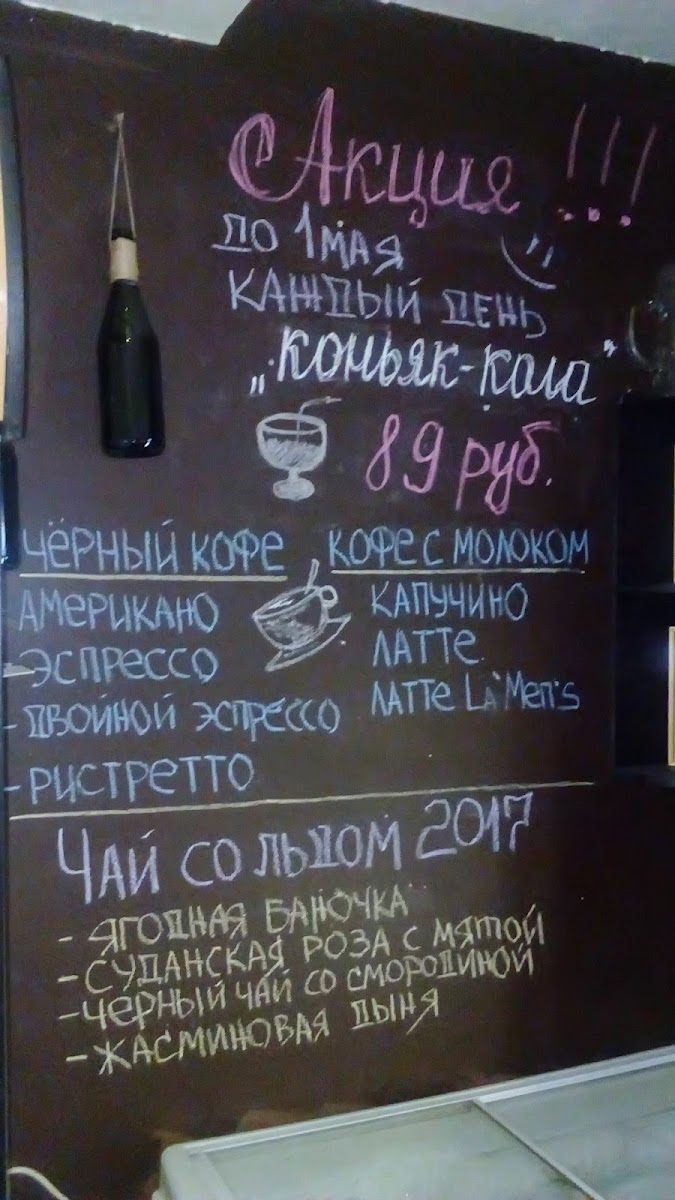 Акция !!!
до 1 мая
каждый день
„Коньяк-кола"
89 руб.
Чёрный кофе
Американо
- Эспрессо
- Двойной эспрессо
- Ристретто
Кофе с молоком
Капучино
Латте
Латте La'Men's
Чай со льдом 2017
- Ягодная баночка
- Суданская роза с мятой
- Черный чай со смородиной
- Жасминовая дыня